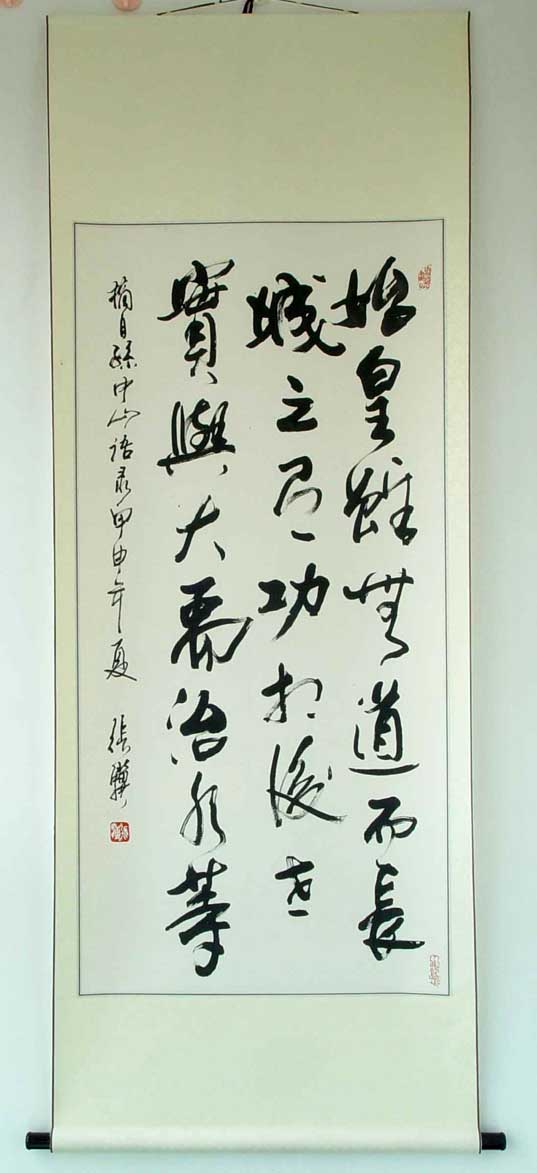 始皇雖無道而長
城之有功於後世
實與大禹治水等
摘自孫中山語录甲申年夏 張